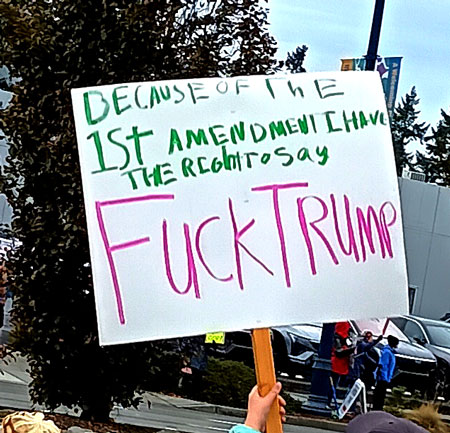 BECAUSE OF THE
1ST AMENDMENT I HAVE
THE RIGHT TO SAY
FUCK TRUMP